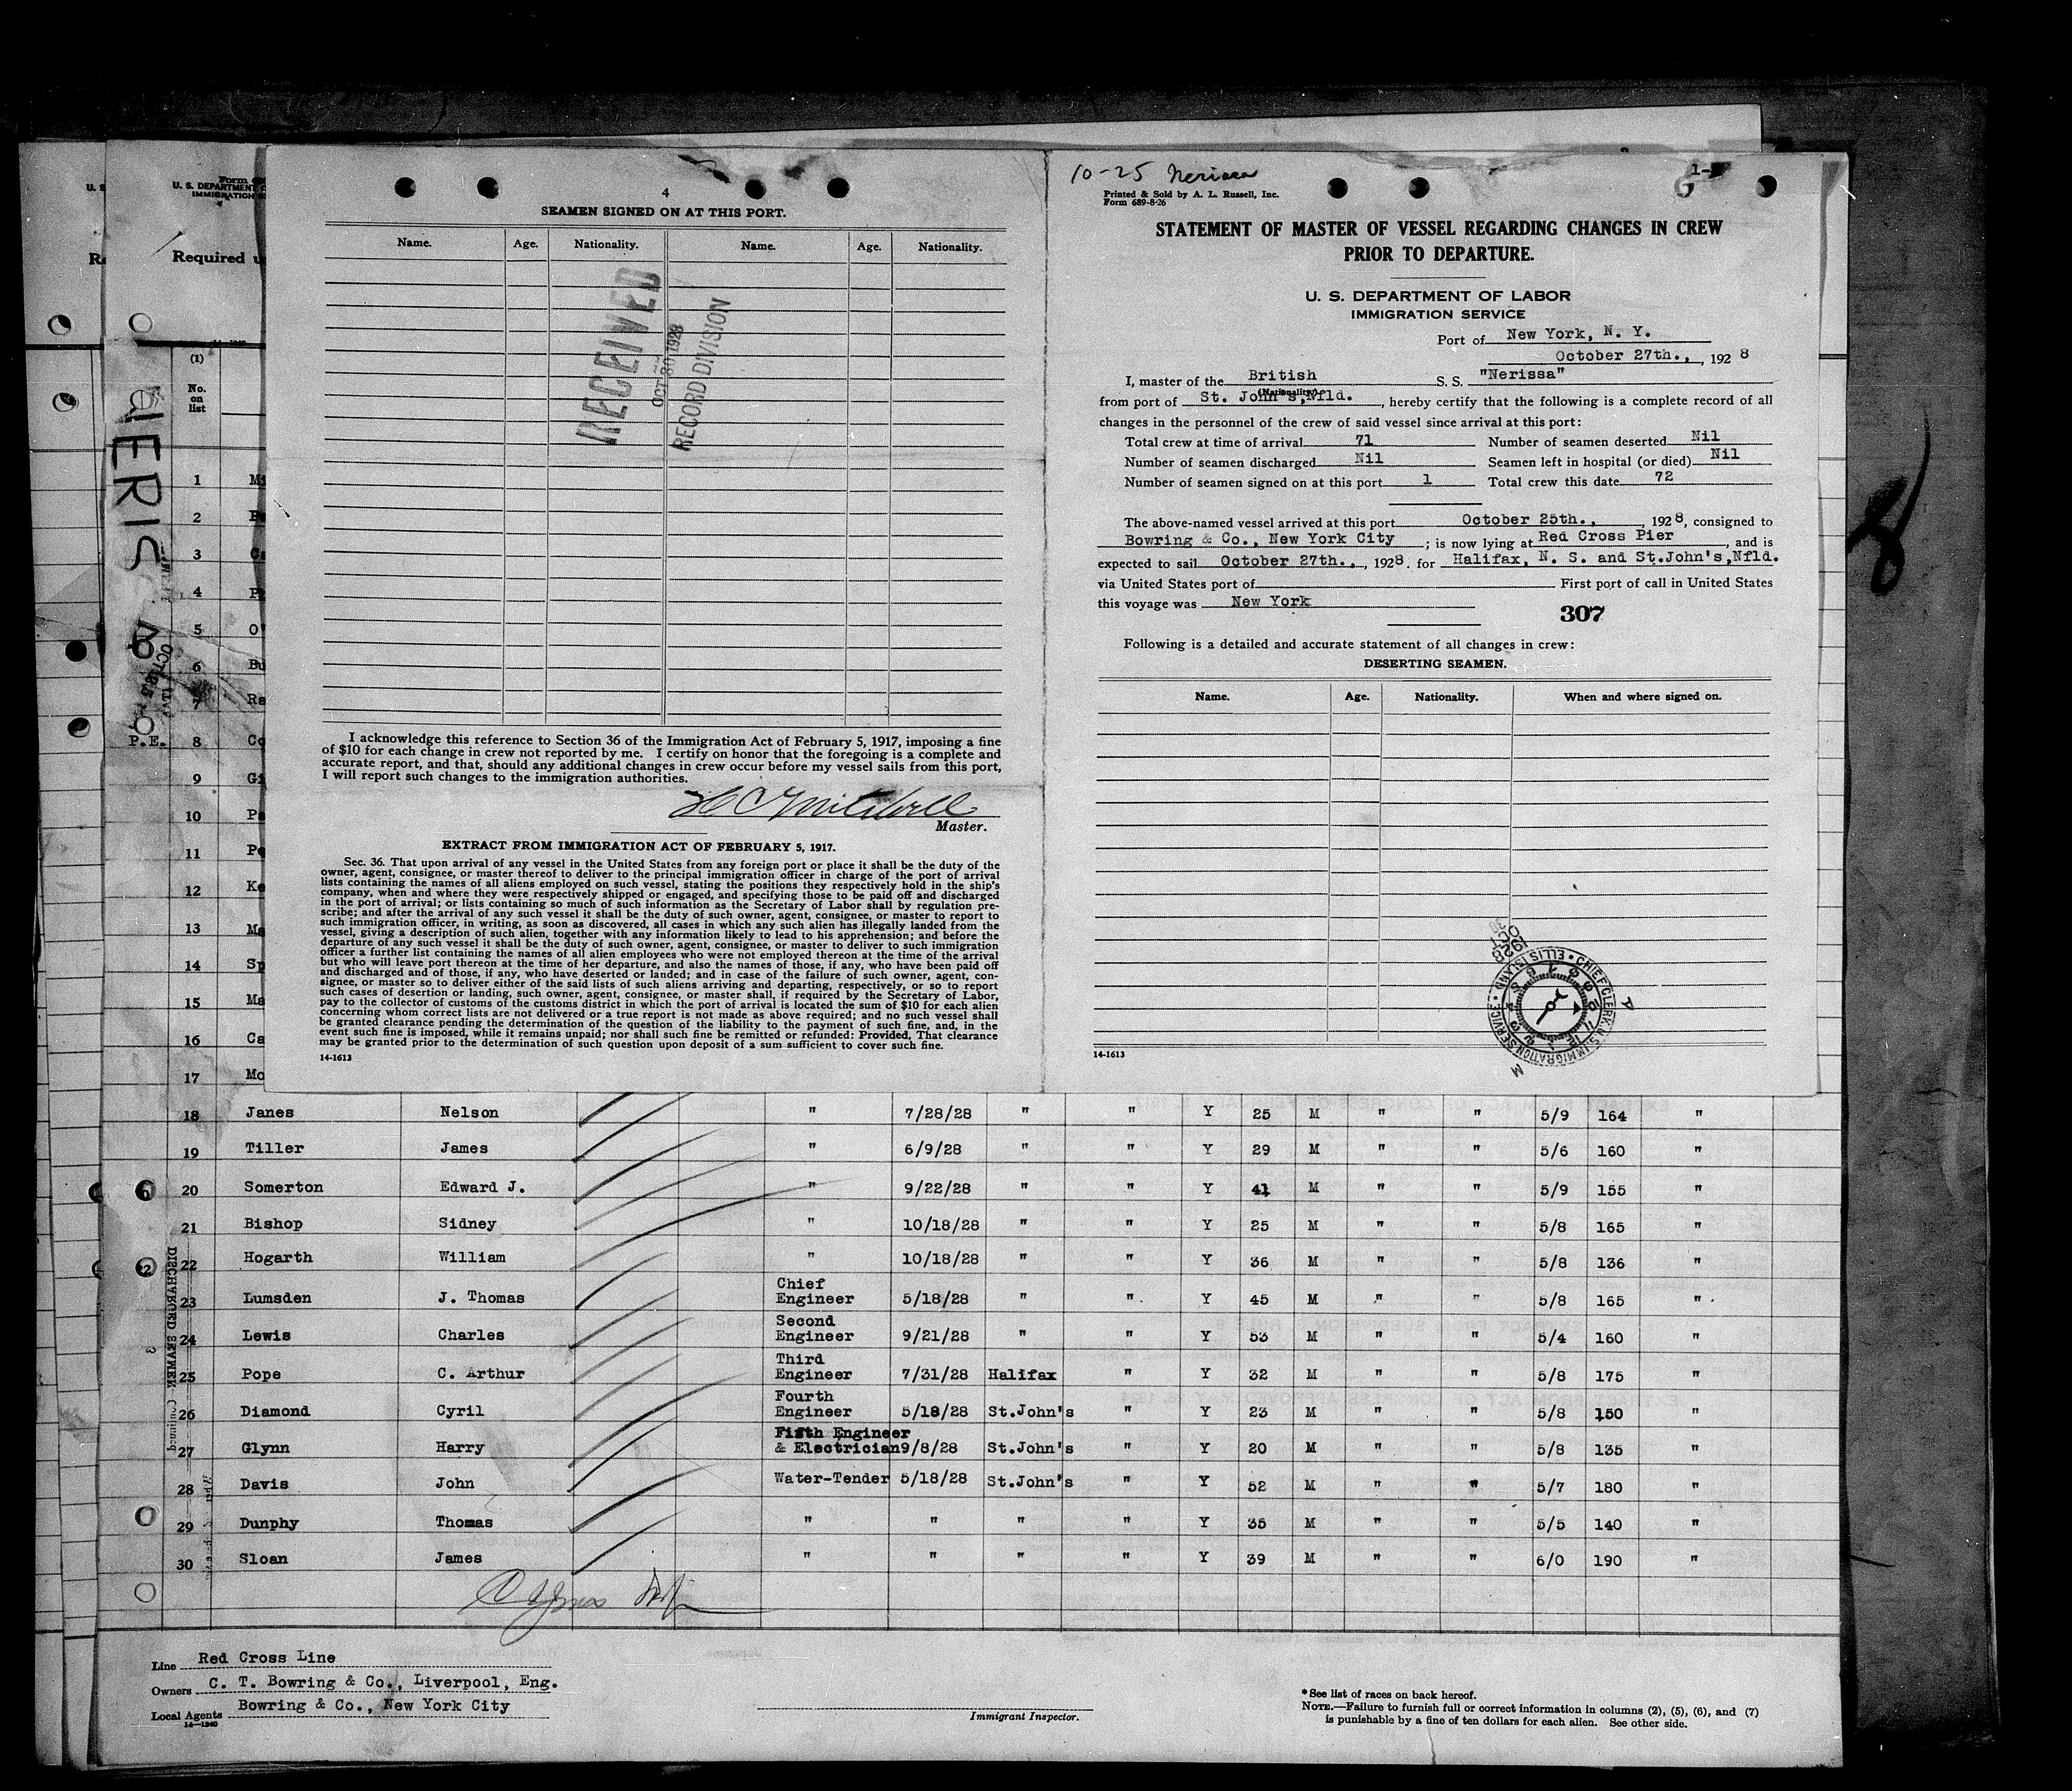 4
SEAMEN SIGNED ON AT THIS PORT.
Name. Age. Nationality. Name. Age. Nationality.
RECEIVED
OCT 30 1928
RECORD DIVISION
I acknowledge this reference to Section 36 of the Immigration Act of February 5, 1917, imposing a fine
of $10 for each change in crew not reported by me. I certify on honor that the foregoing is a complete and
accurate report, and that, should any additional changes in crew occur before my vessel sails from this port,
I will report such changes to the immigration authorities.
Master.
EXTRACT FROM IMMIGRATION ACT OF FEBRUARY 5, 1917.
Sec. 36. That upon arrival of any vessel in the United States from any foreign port or place it shall be the duty of the
owner, agent, consignee, or master thereof to deliver to the principal immigration officer in charge of the port of arrival
lists containing the names of all aliens employed on such vessel, stating the positions they respectively hold in the ship's
company, when and where they were respectively shipped or engaged, and specifying those to be paid off and discharged
in the port of arrival; or lists containing so much of such information as the Secretary of Labor shall by regulation pre-
scribe; and after the arrival of any such vessel it shall be the duty of such owner, agent, consignee, or master to report to
such immigration officer, in writing, as soon as discovered, all cases in which any such alien has illegally landed from the
vessel, giving a description of such alien, together with any information likely to lead to his apprehension; and before the
departure of any such vessel it shall be the duty of such owner, agent, consignee, or master to deliver to such immigration
officer a further list containing the names of all alien employees who were not employed thereon at the time of the arrival
but who will leave port thereon at the time of her departure, and also the names of those, if any, who have been paid off
and discharged and of those, if any, who have deserted or landed; and in case of the failure of such owner, agent, con-
signee, or master so to deliver either of the said lists of such aliens arriving and departing, respectively, or so to report
such cases of desertion or landing, such owner, agent, consignee, or master shall, if required by the Secretary of Labor,
pay to the collector of customs of the customs district in which the port of arrival is located the sum of $10 for each alien
concerning whom correct lists are not delivered or a true report is not made as above required; and no such vessel shall
be granted clearance pending the determination of the question of the liability to the payment of such fine, and, in the
event such fine is imposed, while it remains unpaid; nor shall such fine be remitted or refunded: Provided, That clearance
may be granted prior to the determination of such question upon deposit of a sum sufficient to cover such fine.
14-1613
10-25 Nerissa
Printed & Sold by A. L. Russell, Inc.
Form 689-8-26
STATEMENT OF MASTER OF VESSEL REGARDING CHANGES IN CREW
PRIOR TO DEPARTURE.
U. S. DEPARTMENT OF LABOR
IMMIGRATION SERVICE
Port of New York, N. Y.
October 27th., , 192 8
I, master of the British S. S. "Nerissa"
(Nationality)
from port of St. John's,Nfld. , hereby certify that the following is a complete record of all
changes in the personnel of the crew of said vessel since arrival at this port:
Total crew at time of arrival 71 Number of seamen deserted Nil
Number of seamen discharged Nil Seamen left in hospital (or died) Nil
Number of seamen signed on at this port 1 Total crew this date 72
The above-named vessel arrived at this port October 25th., , 192 8, consigned to
Bowring & Co., New York City ; is now lying at Red Cross Pier , and is
expected to sail October 27th., , 1928. for Halifax, N. S. and St.John's,Nfld.
via United States port of First port of call in United States
this voyage was New York
307
Following is a detailed and accurate statement of all changes in crew:
DESERTING SEAMEN.
Name. Age. Nationality. When and where signed on.
CHIEF CLERK U.S. IMMIGRATION SERVICE ELLIS ISLAND
14-1613
U. S. DEPARTMENT
IMMIGRATION
Required
(1)
No.
on
list
1
2
3
4
5
6
7
P.E. 8
9
10
11
12
13
14
15
16
17
18 Janes Nelson " 7/28/28 " " Y 25 M " " 5/9 164 "
19 Tiller James " 6/9/28 " " Y 29 M " " 5/6 160 "
20 Somerton Edward J. " 9/22/28 " " Y 41 M " " 5/9 155 "
21 Bishop Sidney " 10/18/28 " " Y 25 M " " 5/8 165 "
22 Hogarth William " 10/18/28 " " Y 36 M " " 5/8 136 "
23 Lumsden J. Thomas Chief Engineer 5/18/28 " " Y 45 M " " 5/8 165 "
24 Lewis Charles Second Engineer 9/21/28 " " Y 53 M " " 5/4 160 "
25 Pope C. Arthur Third Engineer 7/31/28 Halifax " Y 32 M " " 5/8 175 "
26 Diamond Cyril Fourth Engineer 5/18/28 St.John's " Y 23 M " " 5/8 150 "
27 Glynn Harry Fifth Engineer & Electrician 9/8/28 St.John's " Y 20 M " " 5/8 135 "
28 Davis John Water-Tender 5/18/28 St.John's " Y 52 M " " 5/7 180 "
29 Dunphy Thomas " " " " Y 35 M " " 5/5 140 "
30 Sloan James " " " " Y 39 M " " 6/0 190 "
DISCHARGED SEAMEN Continued
Line Red Cross Line
Owners C. T. Bowring & Co., Liverpool, Eng.
Local Agents Bowring & Co., New York City
14-1240
Immigrant Inspector.
* See list of races on back hereof.
NOTE.—Failure to furnish full or correct information in columns (2), (5), (6), and (7)
is punishable by a fine of ten dollars for each alien. See other side.